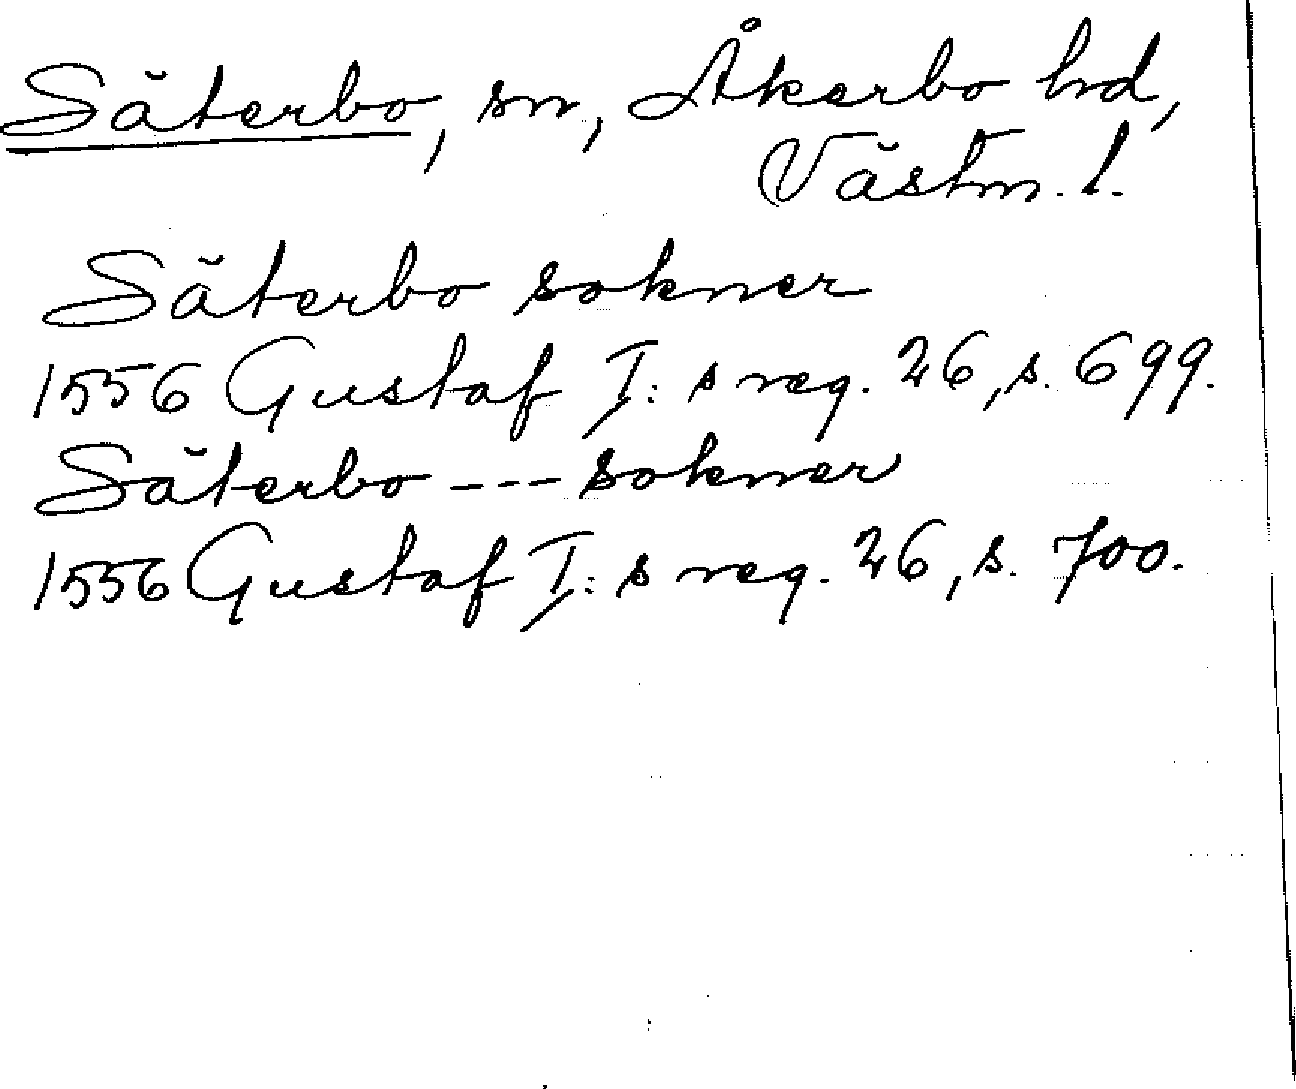 Säterbo, sn, Åkerbo hd,
Västm. l.
Säterbo sokner
1556 Gustaf I:s reg. 26, s. 699.
Säterbo --- sokner
1556 Gustaf I:s reg. 26, s. 700.